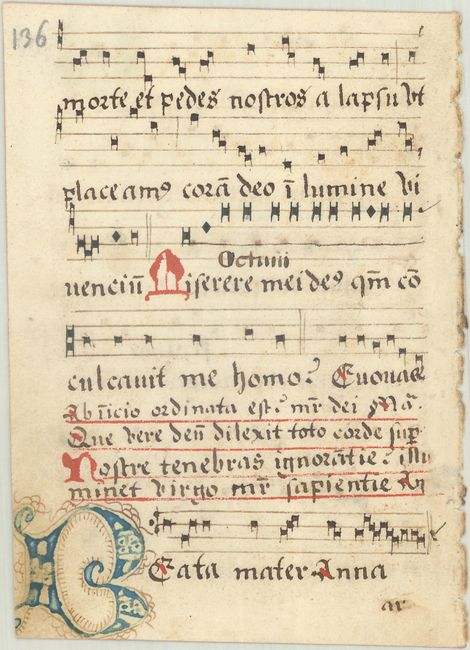 136
morte et pedes nostros a lapsu vt
placeam⁹ corā deo ī lumine vi
Octaui
uenciū Miserere mei de⁹ qm̄ cō
culcauit me homo. Euouae
Ab īicio ordinata est. mr̄ dei
Que vere deū dilexit toto corde sup
Nostre tenebras ignorātie. illu
minet virgo mr̄ sapientie
Beata mater Anna
ar